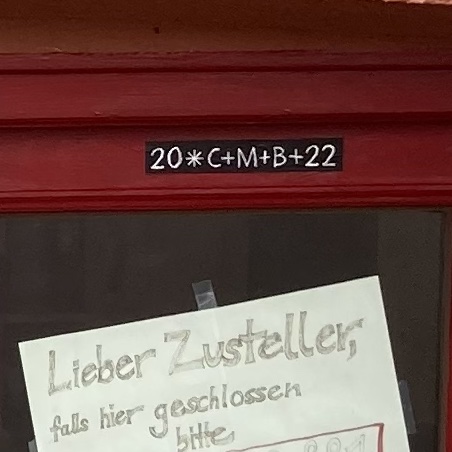 20*C+M+B+22
Lieber Zusteller,
falls hier geschlossen
bitte